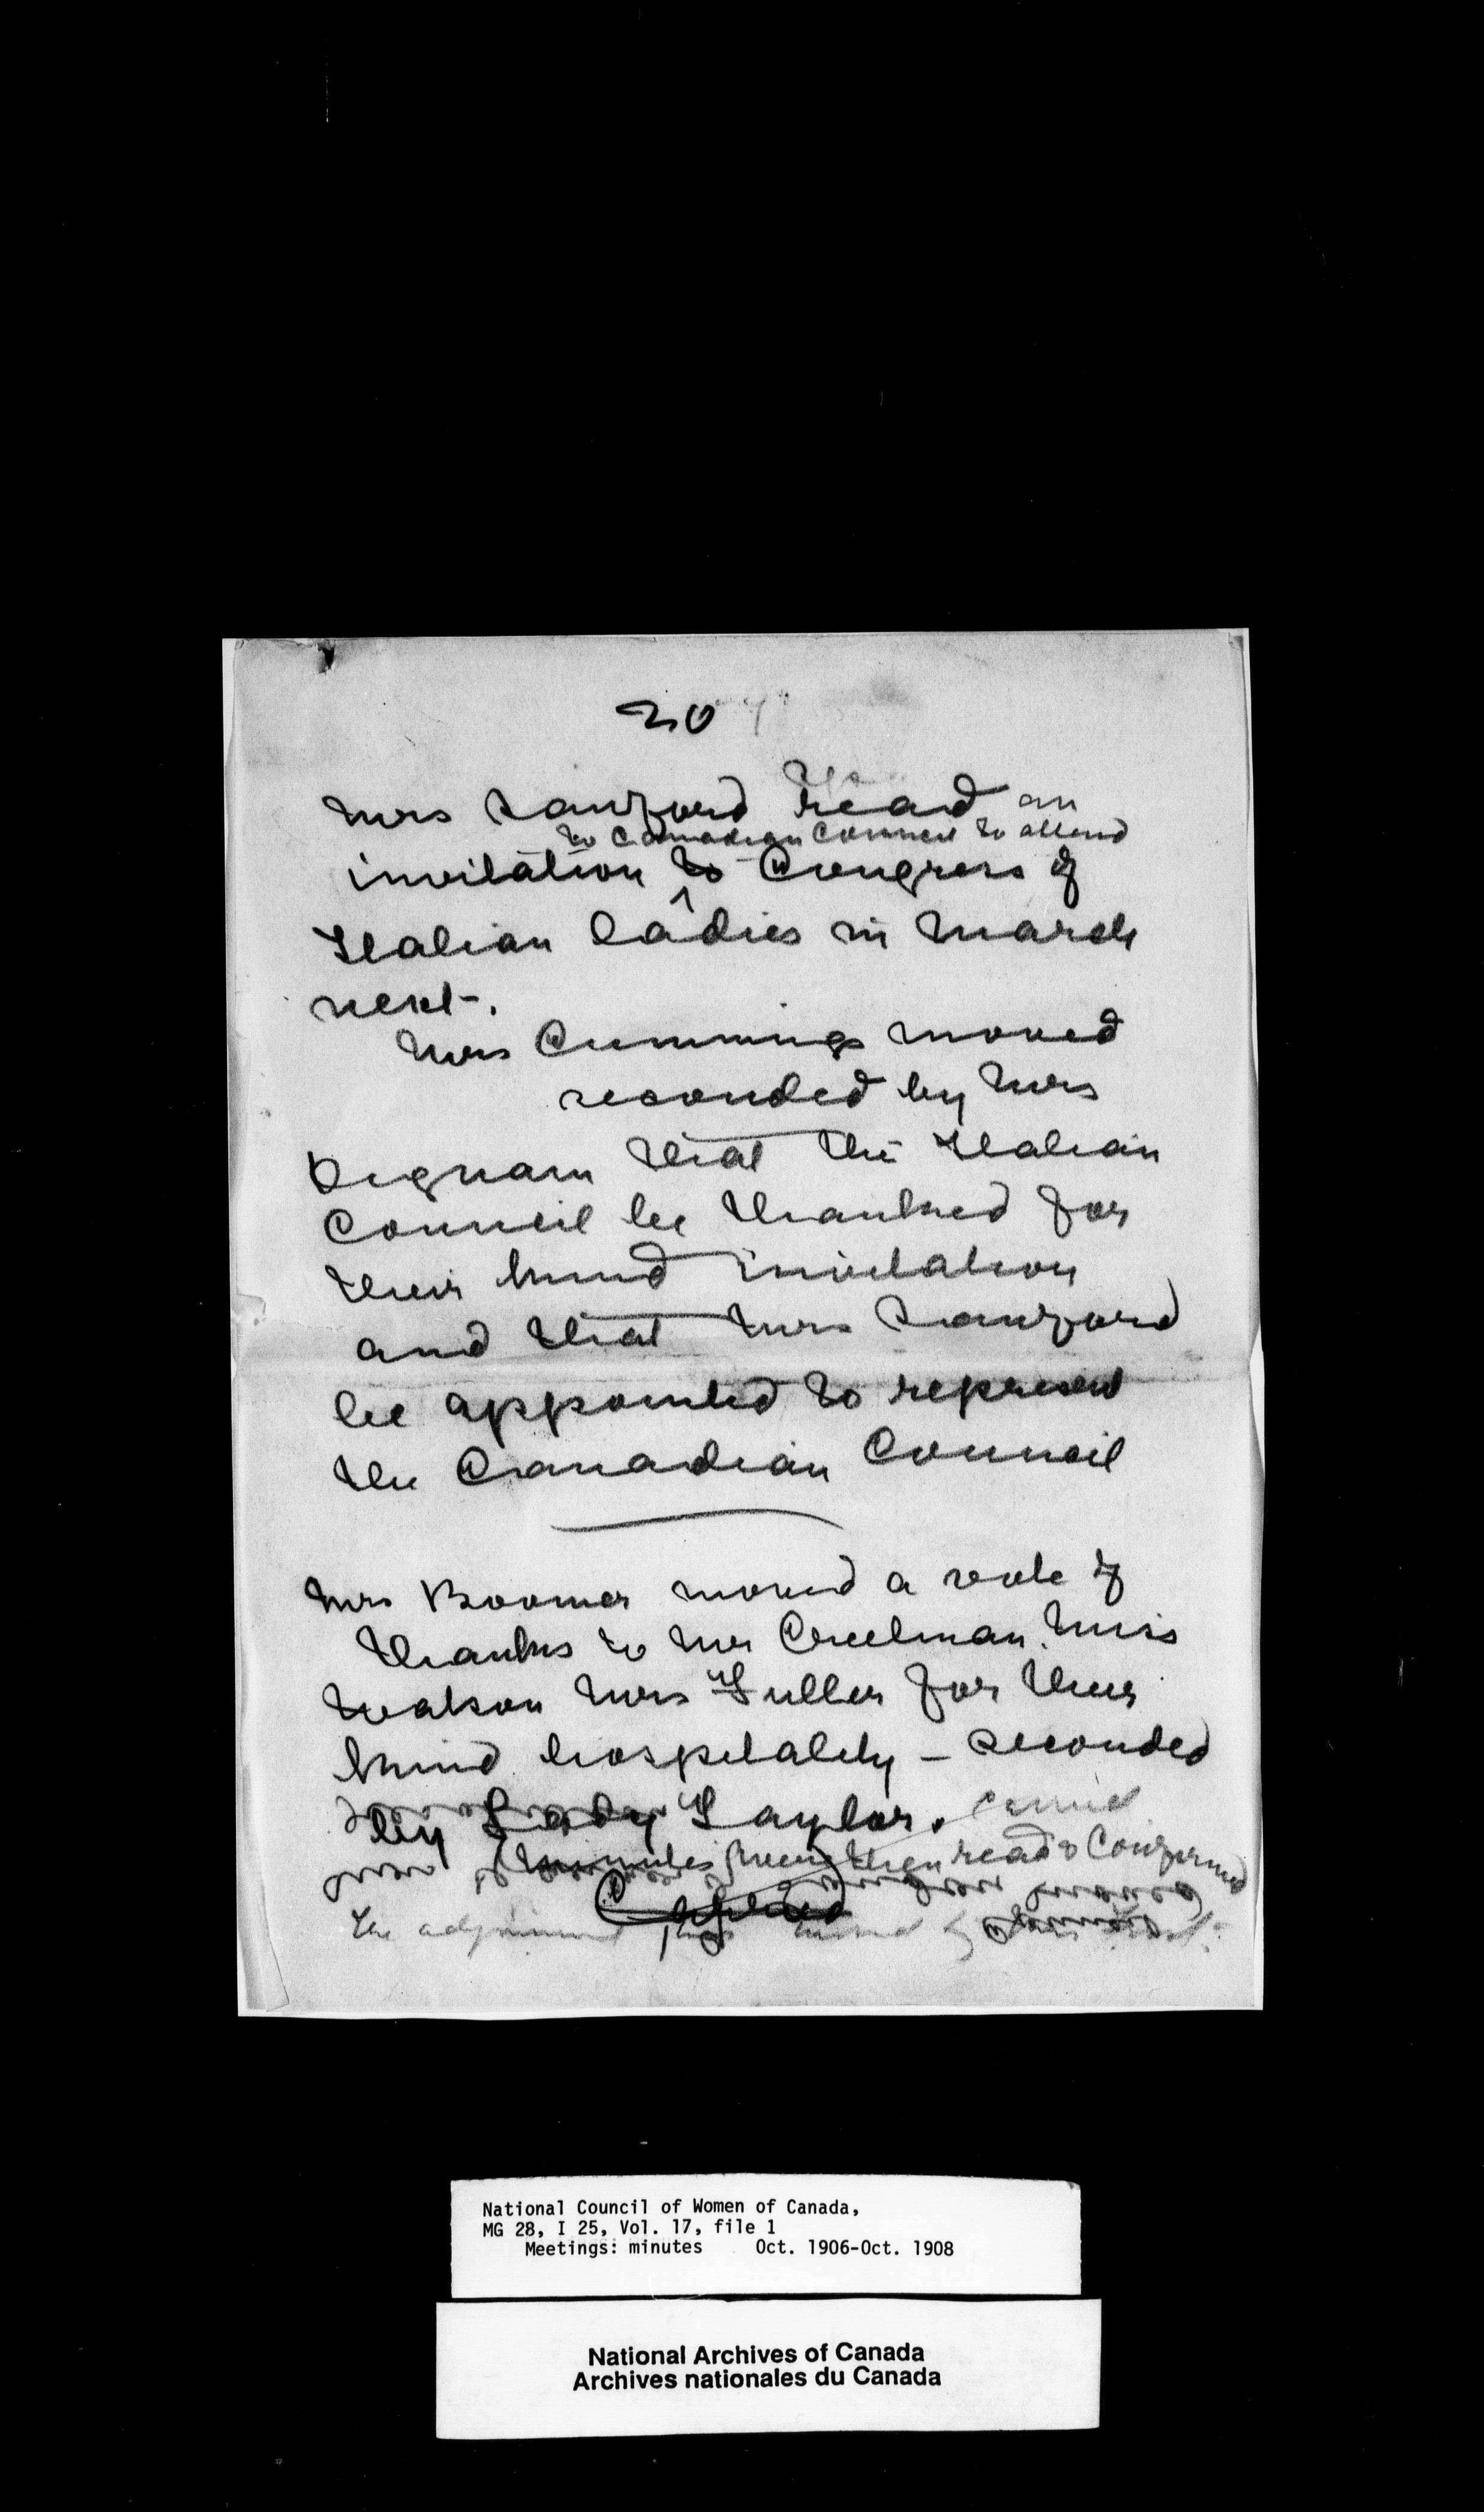 20
Mrs Sanford read an
to Canadian Council to attend
invitation to Congress of
Italian ladies in March
next.
Mrs Cummings moved
seconded by Mrs
Dignam that the Italian
Council be thanked for
their kind invitation
and that Mrs Sanford
be appointed to represent
the Canadian Council
Mrs Boomer moved a vote of
thanks to Mrs Creelman, Miss
Watson Mrs Fuller for their
kind hospitality - seconded
by Lady Taylor. Carried
Minutes were then read & Confirmed
The adjournment was moved by
National Council of Women of Canada,
MG 28, I 25, Vol. 17, file 1
Meetings: minutes Oct. 1906-Oct. 1908
National Archives of Canada
Archives nationales du Canada